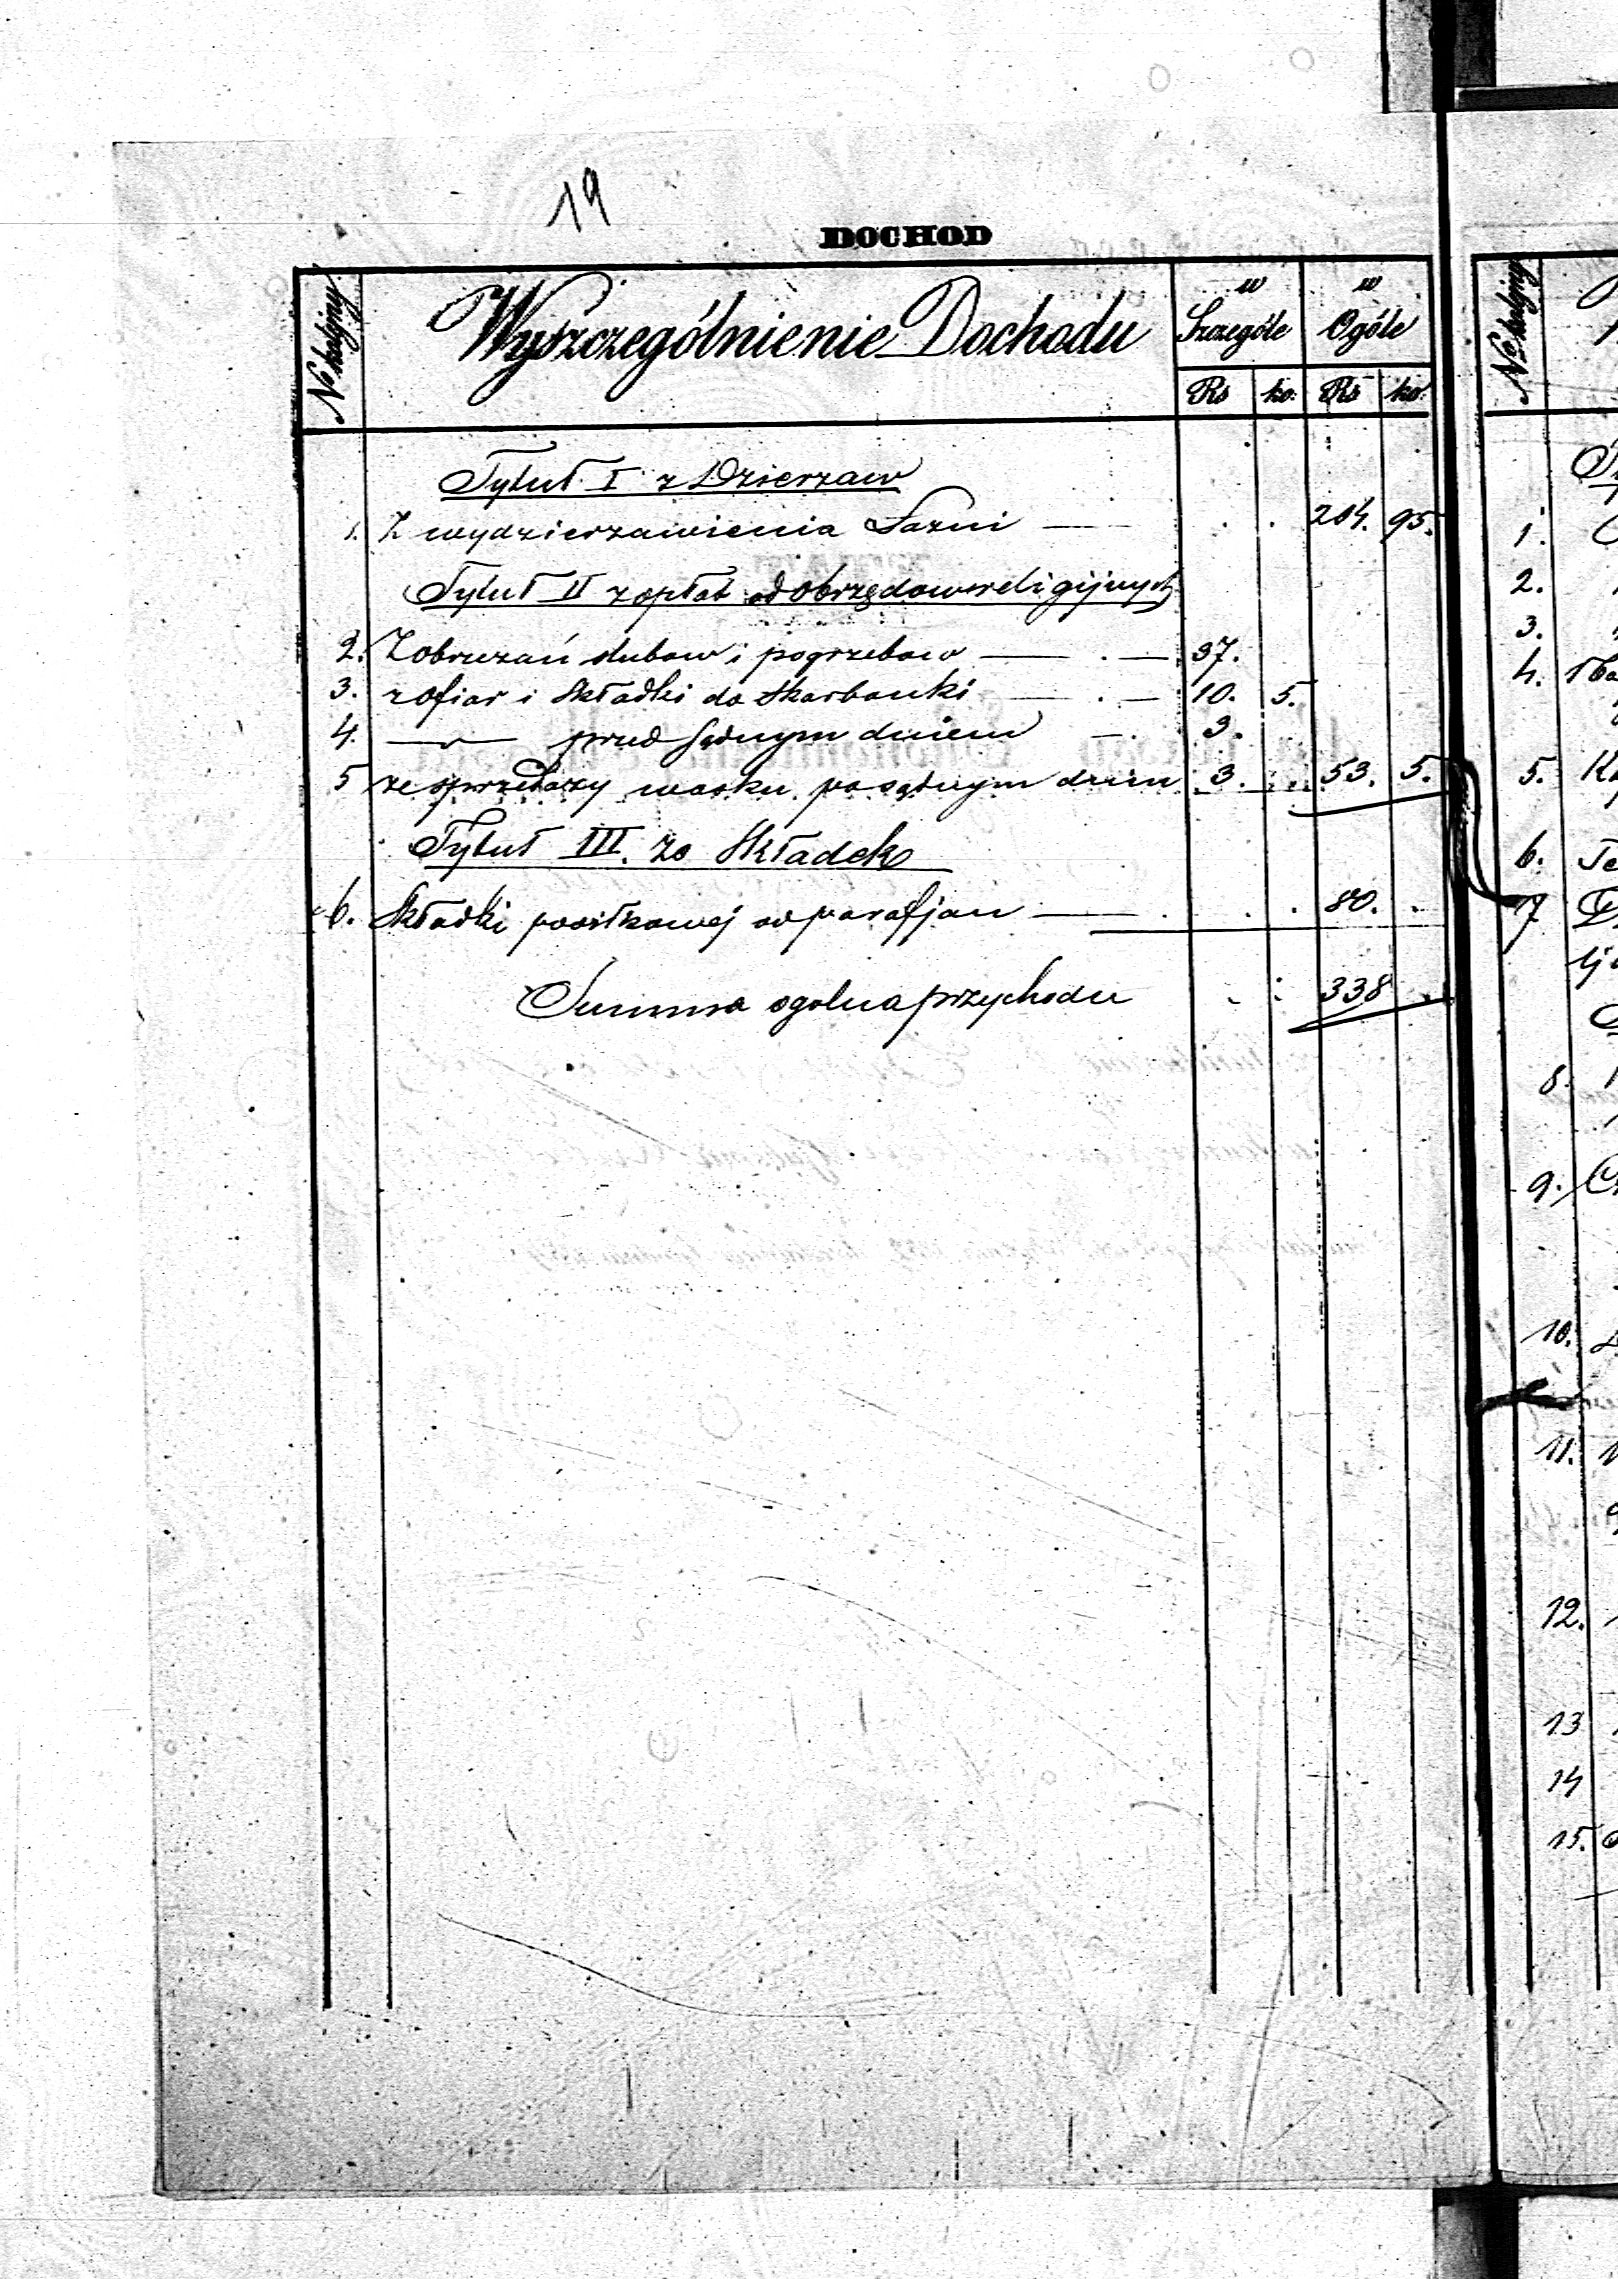 19
DOCHOD
No kolejny Wyszczególnienie Dochodu w Szczególe w Ogóle
Rs ko. Rs ko.
Tytuł I z Dzierzaw
1. Z wydzierzawienia Łazni 204. 95.
Tytuł II z opłat od obrzędow religijnych
2. Z obrzezań slubow i pogrzebow 37.
3. z ofiar i składki do skarbonki 10. 5.
4. przed sądnym dniem 3.
5 ze sprzedazy wosku po sądnym dniu 3. 53. 5.
Tytuł III. Ze Składek
6. Składki posiłkowej od parafjan 80.
Summa ogolna przychodu 338
No kolejny
1.
2.
3.
4.
5.
6.
7
8.
9.
10.
11.
12.
13
14
15.